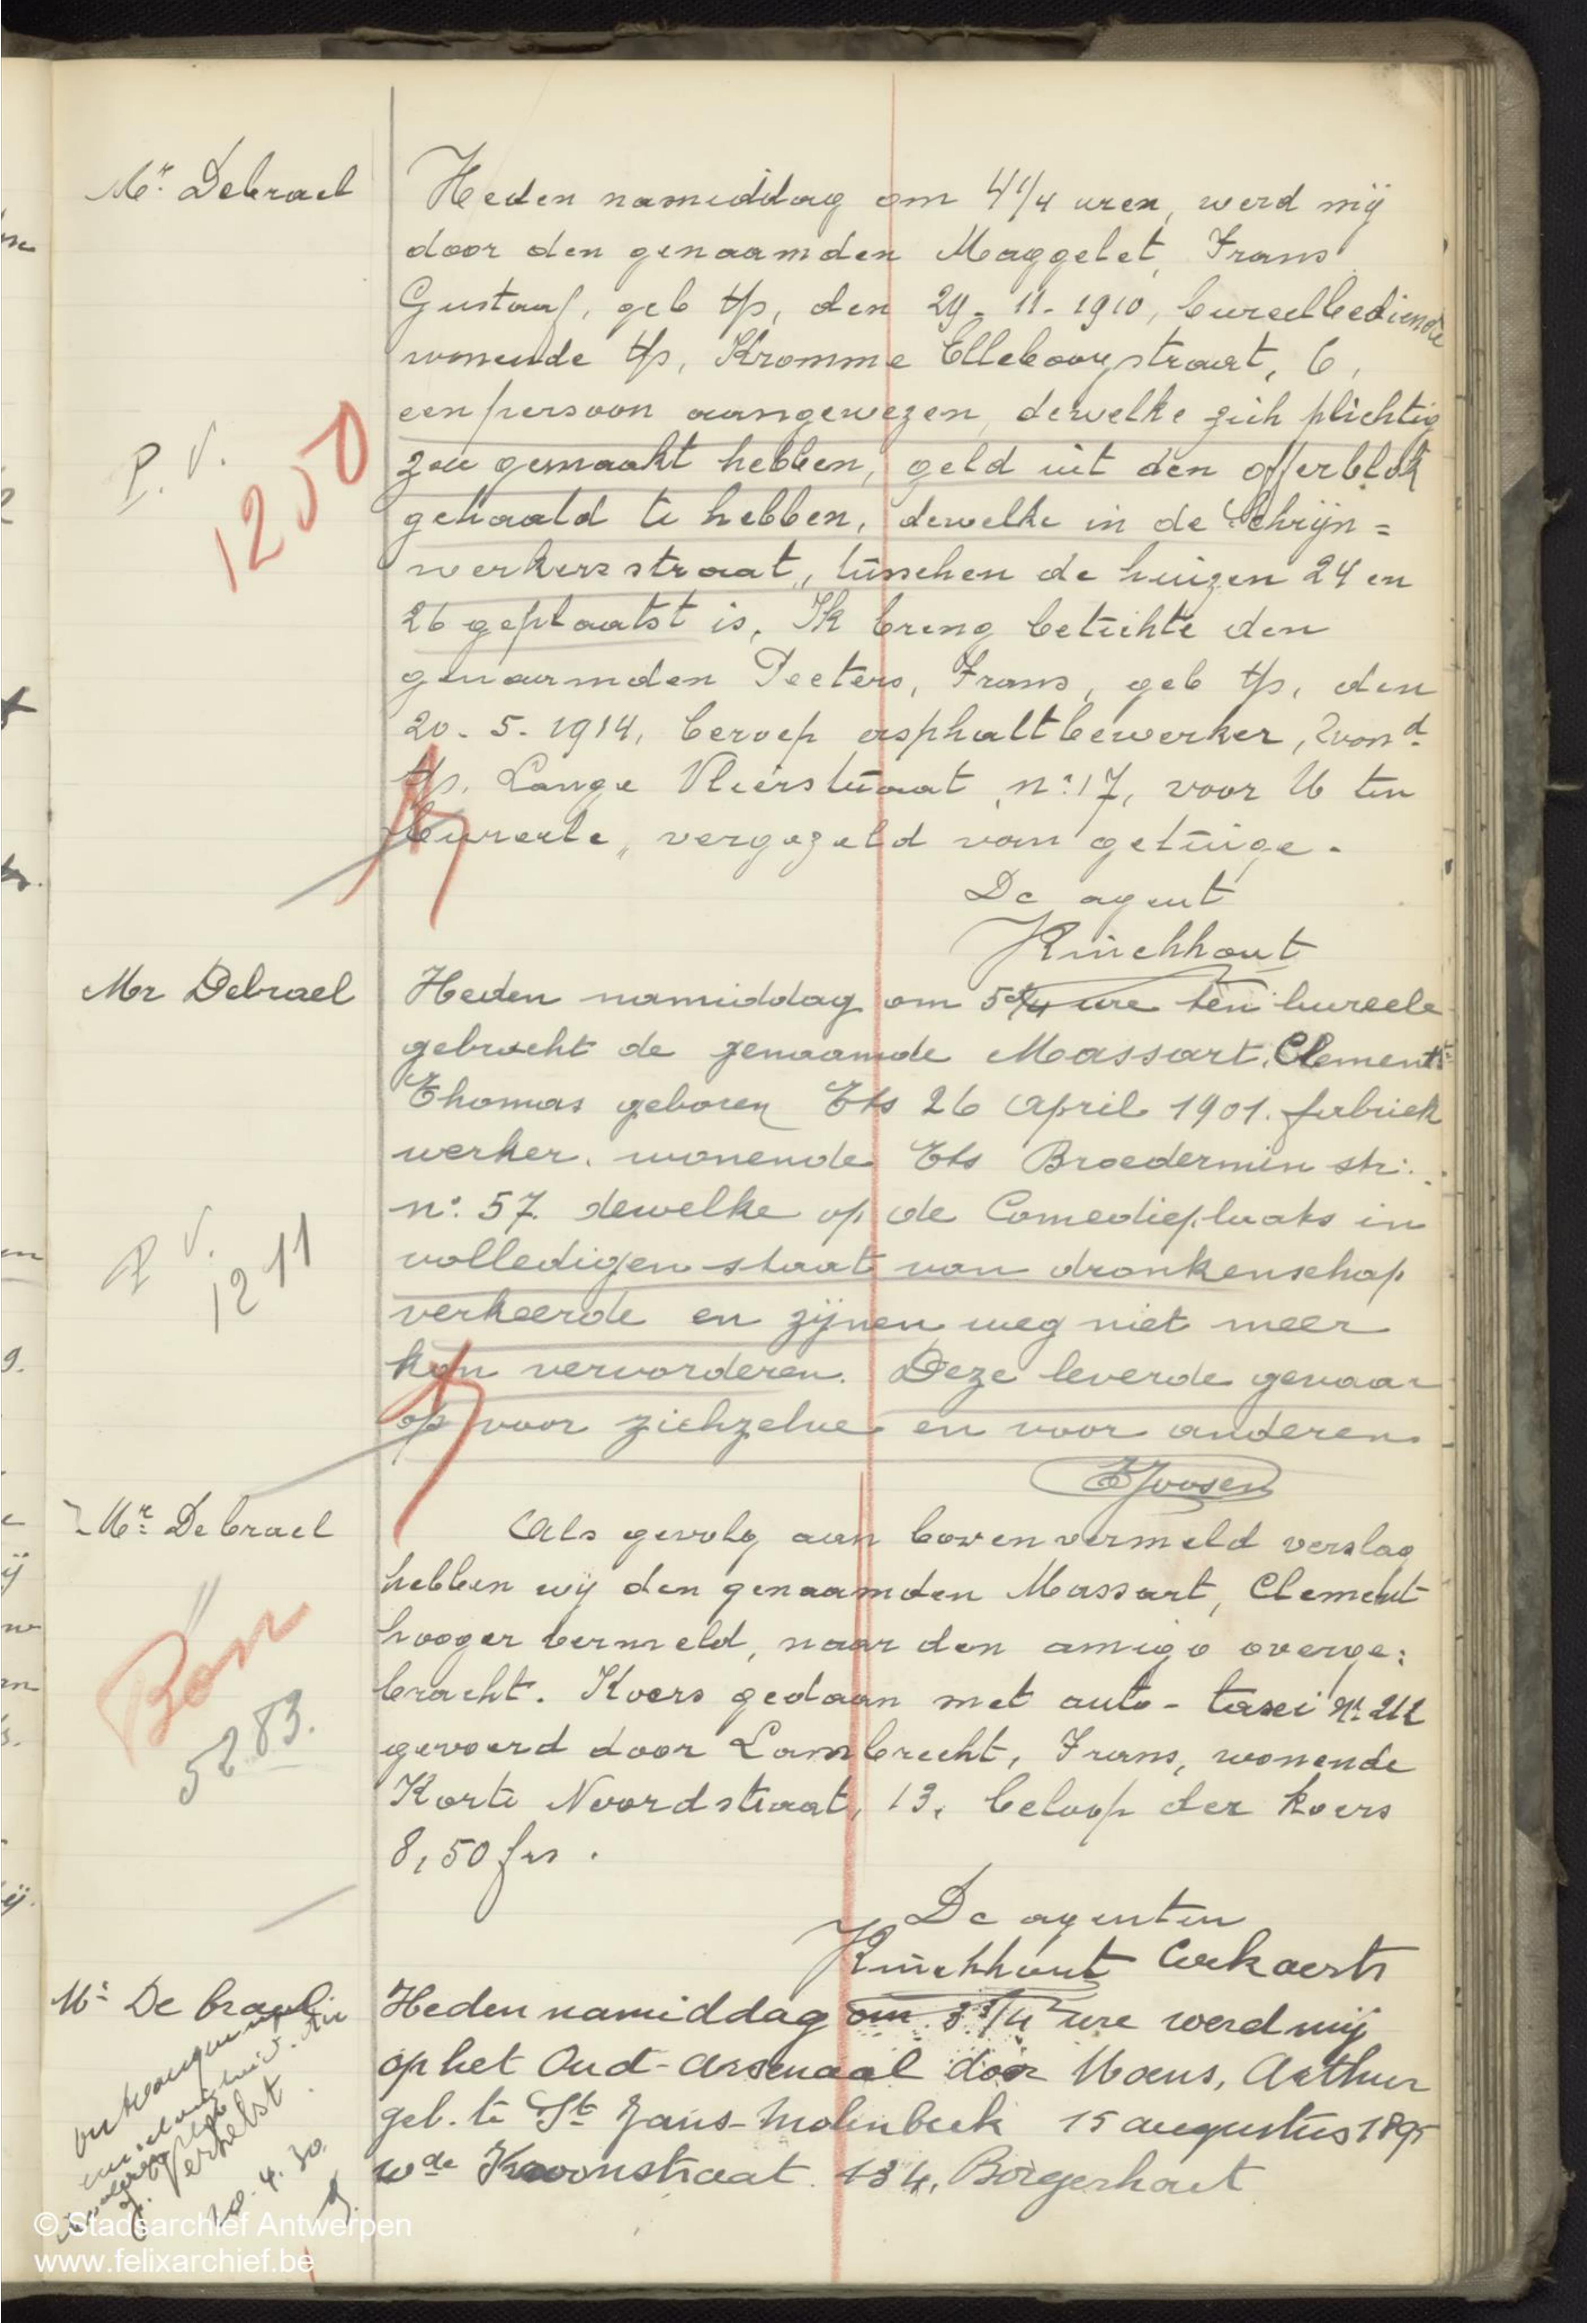 Mr. Debrael
Heden namiddag om 4 1/4 uren, werd mij
door den genaamden Maggelet, Frans
Gustaaf, geb t/s, den 29-11-1910, bureelbediende
wonende t/s, Kromme Elleboogstraat, 6,
een persoon aangewezen, dewelke zich plichtig
zou gemaakt hebben, geld uit den offerblok
gehaald te hebben, dewelke in de Schrijn=
werkersstraat, tusschen de huizen 24 en
26 geplaatst is. Ik breng betichte den
genaamden Peeters, Frans, geb t/s, den
20-5-1914, beroep asphaltbewerker, won d.
t/s. Lange Vlierstraat n:17, voor U ten
bureele, vergezeld van getuige.
De agent
Kinckhout
P.V.
1210
Mr Debrael
Heden namiddag om 5 3/4 ure ten bureele
gebracht de genaamde Massart. Clement
Thomas geboren t/s 26 April 1901. fabriek
werker. wonende t/s Broedermin str:
n: 57. dewelke op de Comedieplaats in
volledigen staat van dronkenschap
verkeerde en zijnen weg niet meer
kon vervorderen. Deze leverde gevaar
op voor zichzelve en voor anderen
Joosen
P V.
1211
Mr. De brael
Als gevolg aan bovenvermeld verslag
hebben wij den genaamden Massart, Clement
hooger vermeld, naar den amigo overge:
bracht. Koers gedaan met auto-taxei Nr. 212
gevoerd door Lambrecht, Frans, wonende
Korte Noordstraat, 13. beloop der koers
8,50 frs.
De agenten
Kinckhout Cockaerts
Bon
5283.
Mr De brael
Heden namiddag om 3 3/4 ure werd mij
op het Oud-Arsenaal door Maens, Arthur
geb. te St Jans-Molenbeek 15 augustus 1895
wde Kroonstraat 134, Borgerhout
Verhelst
20.4.30.
© Stadsarchief Antwerpen
www.felixarchief.be